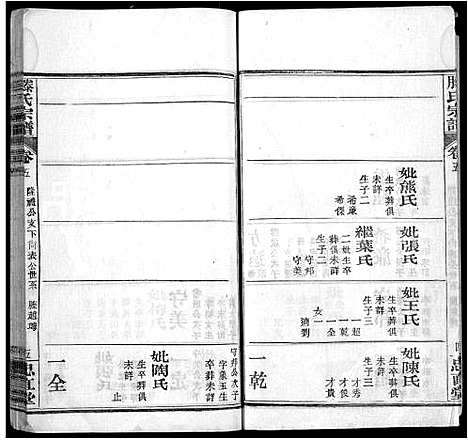 滕氏宗譜
卷五
妣熊氏
生卒葬俱
未詳
生子二
希廉
希傑
妣張氏
繼葉氏
二妣生卒
葬俱未詳
生子二
守邦
守美
妣王氏
生卒葬俱
未詳
生子三
一超
一乾
女一
妣陳氏
生卒葬俱
未詳
生子三
才秀
才貴
一乾
守邦公次子
守泉玉生
卒葬未詳
妣陶氏
生卒葬俱
未詳
止
一全
滕氏宗譜
卷五
五
忠直堂